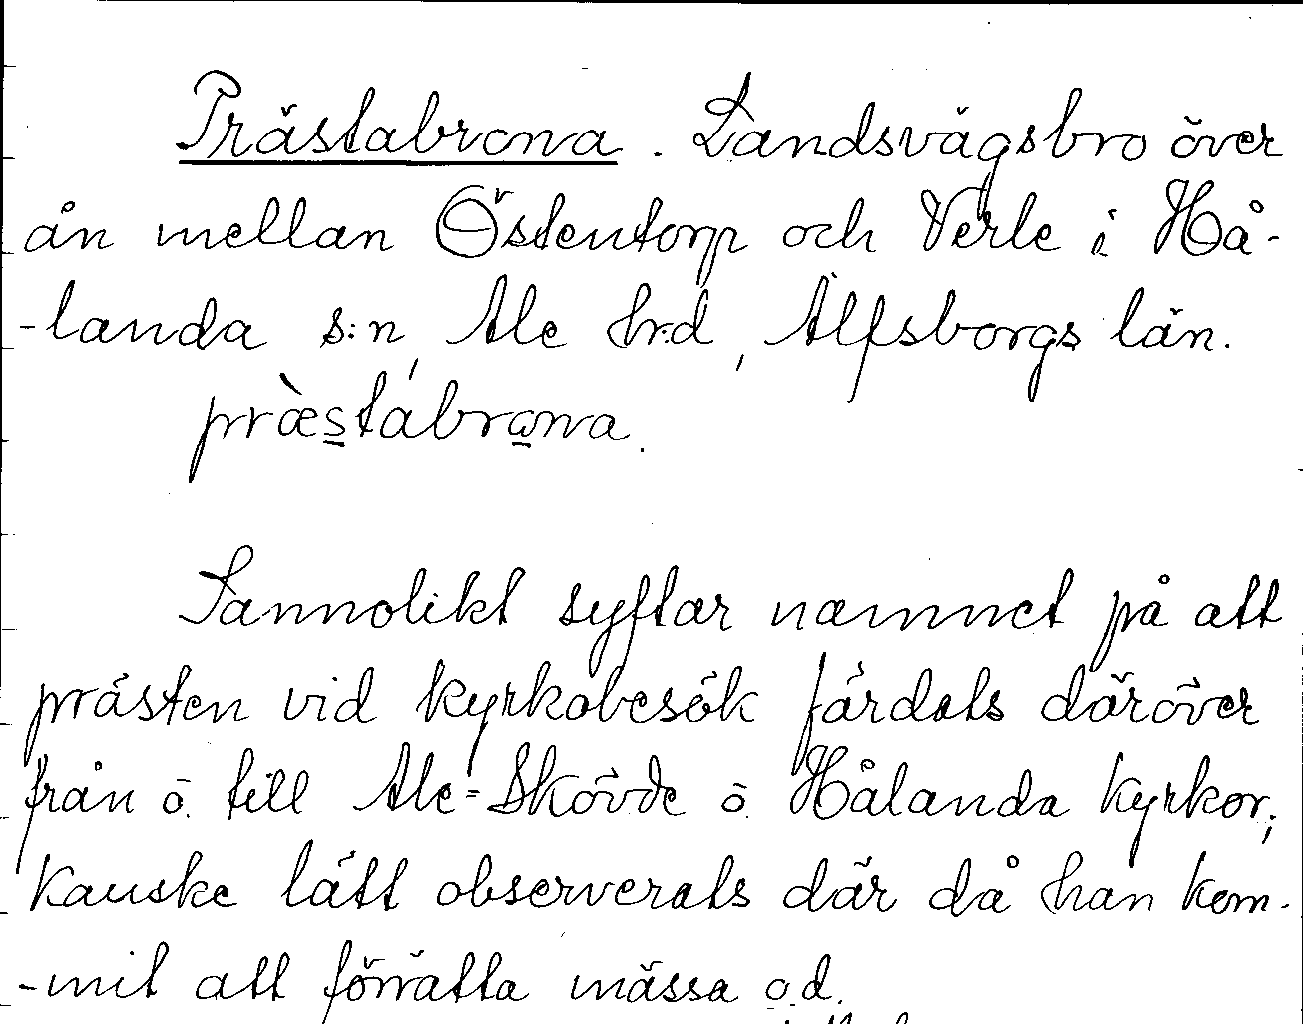 Prästabrona. Landsvägsbro över
ån mellan Östentorp och Verle i Hå-
-landa s:n, Ale hrd, Älfsborgs län.
præ̀stabrɷna.
Sannolikt syftar namnet på att
prästen vid kyrkobesök färdats däröver
från o. till Ale-Skövde o. Hålanda kyrkor;
kanske lätt observerats där då han kom-
-mit att förrätta mässa o.d.